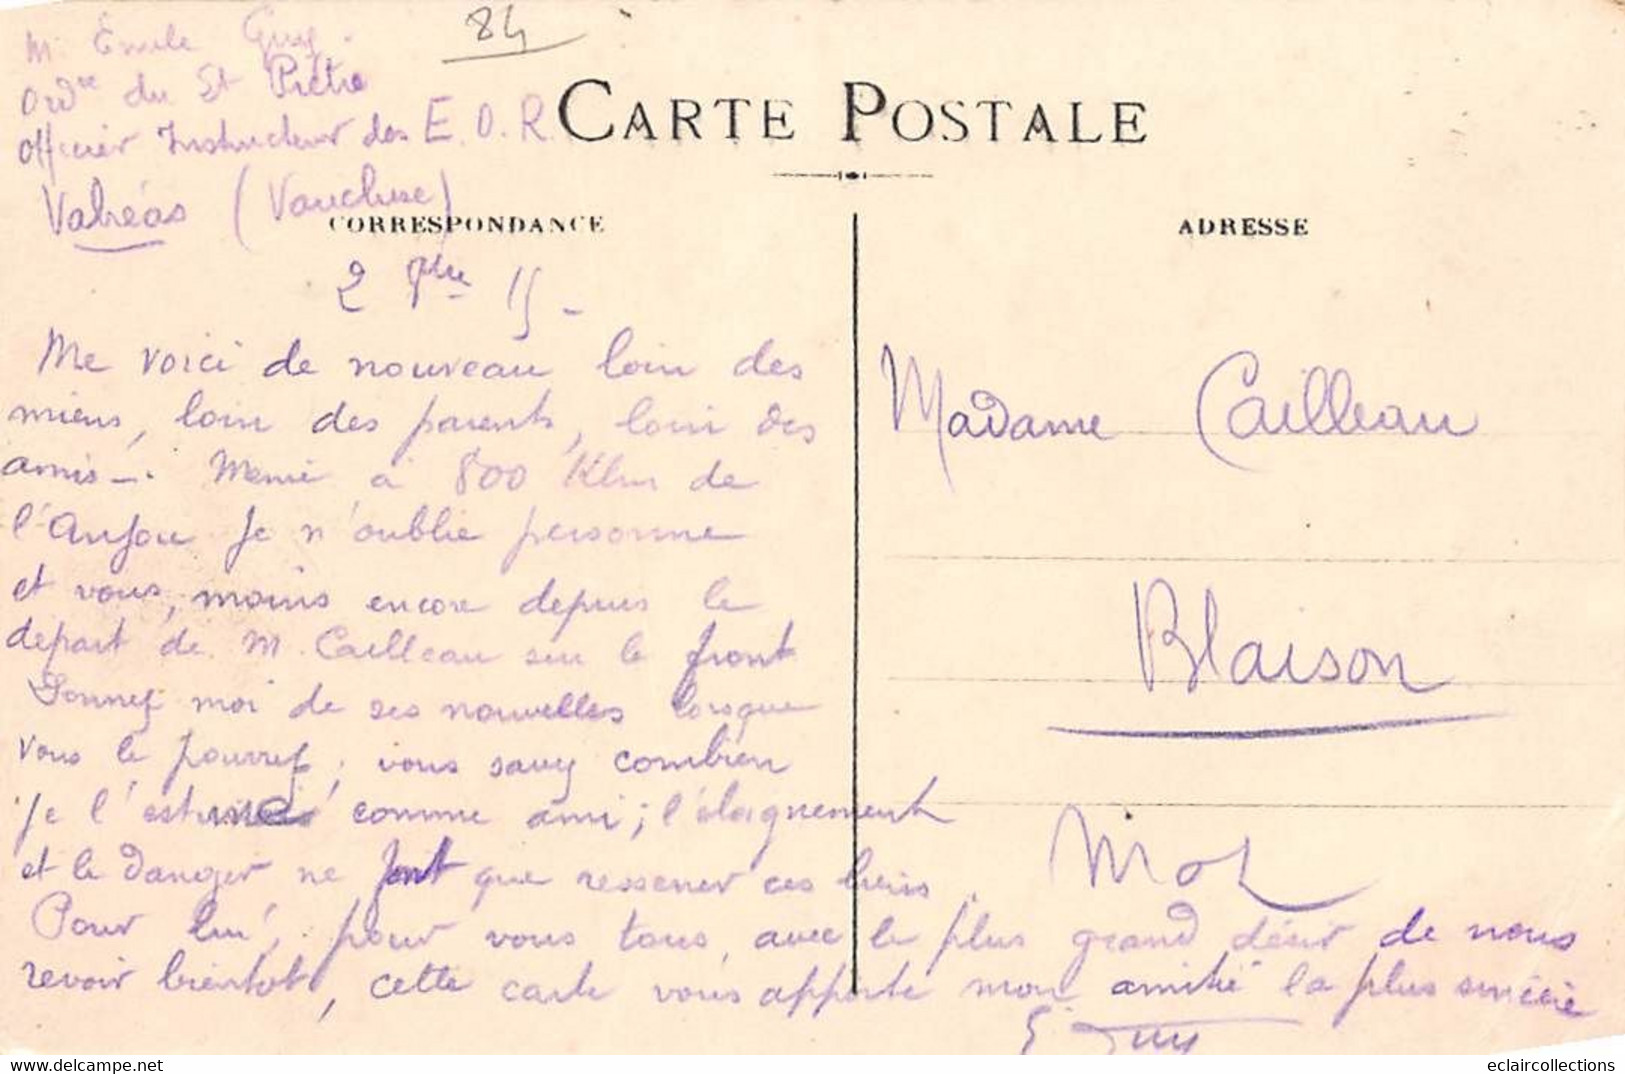 84
M. Emile Guy.
Ordre du St Pietre
Officier Instructeur des E.O.R.
Valréas (Vaucluse)
CARTE POSTALE
CORRESPONDANCE
ADRESSE
2 7bre 15 -
Me voici de nouveau loin des
miens, loin des parents, loin des
amis -. Meme à 800 Klm de
l'Anjou je n'oublie personne
et vous, moins encore depuis le
depart de M. Cailleau sur le front
Donnez moi de ses nouvelles lorsque
vous le pourrez ; vous savez combien
je l'estime comme ami ; l'eloignement
et le danger ne font que resserrer ces liens.
Pour lui, pour vous tous, avec le plus grand désir de nous
revoir bientot, cette carte vous apporte mon amitié la plus sincère
E. Guy
Madame Cailleau
Blaison
eclaircollections